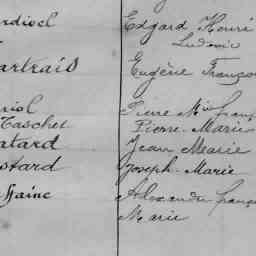 rdioel Edgard Henri
Ludovic
artrais Eugène Franço
riol Pierre Mie Franç
Taschet Pierre-Marie
atard Jean Marie
stard Joseph-Marie
Haine Alexandre franço
Marie